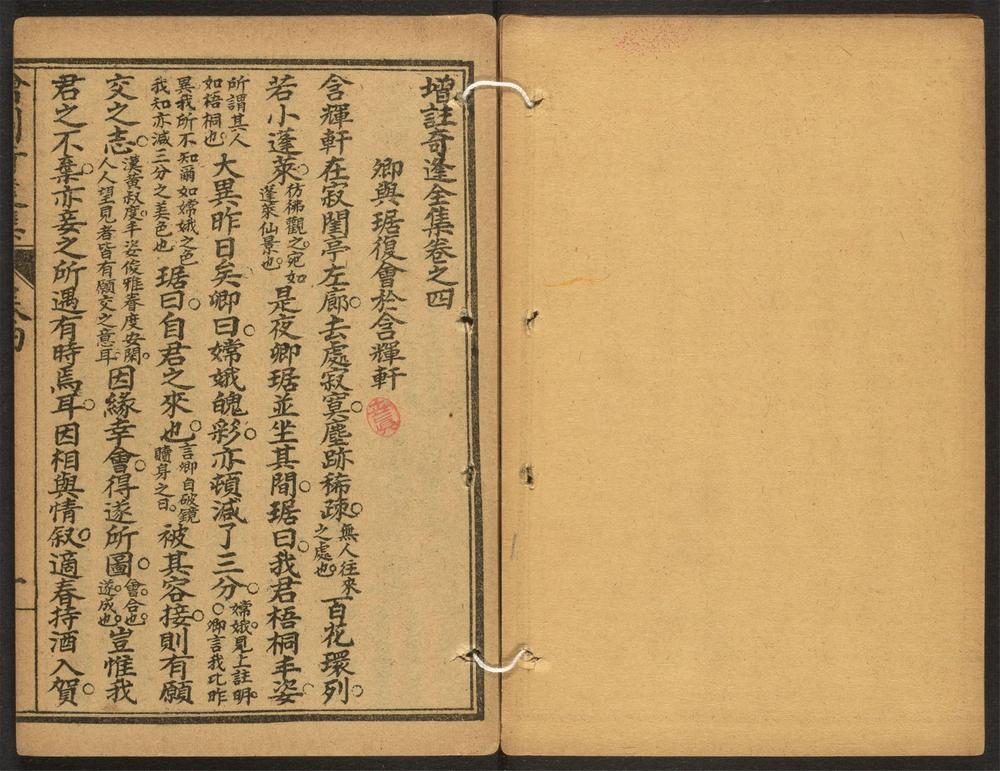 增註奇逢全集卷之四
卿與琚復會於含輝軒
含輝軒在寂閨亭左廊○去處寂寞○塵跡稀疎○無人往來之處也○百花環列○
若小蓬萊○彷彿觀之○宛如蓬萊仙景也○是夜卿琚並坐其間○琚曰○我君梧桐丰姿○
所謂其人如梧桐也○大異昨日矣卿曰○嫦娥魄彩○亦頓減了三分○嫦娥○見上註明○○卿言我比昨
異我所不知爾如嫦娥之色我知亦減三分之美色也琚曰○自君之來也○言卿自破鏡贖身之日○被其容接○則有願
交之志○漢黃叔度○丰姿俊雅睿度安閑○人人望見者皆有願交之意耳因緣幸會○得遂所圖○會○合也○遂○成也○豈惟我
君之不棄○亦妾之所遇有時焉耳○因相與情叙○適春持酒入賀○